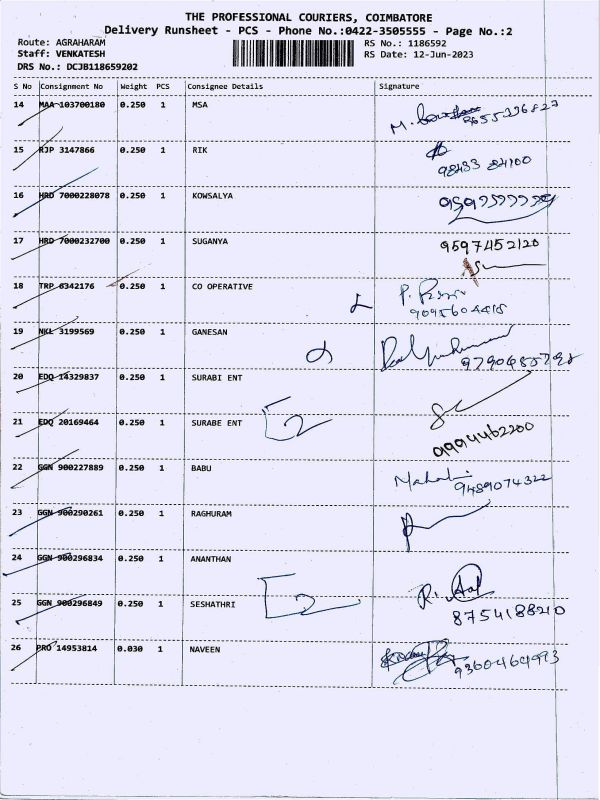 THE PROFESSIONAL COURIERS, COIMBATORE
Delivery Runsheet - PCS - Phone No.:0422-3505555 - Page No.:2
Route: AGRAHARAM RS No.: 1186592
Staff: VENKATESH RS Date: 12-Jun-2023
DRS No.: DCJB118659202
S No Consignment No Weight PCS Consignee Details Signature
14 MAA 103700180 0.250 1 MSA
15 RJP 3147866 0.250 1 RIK
98433 84100
16 HRD 7000228078 0.250 1 KOWSALYA
17 HRD 7000232700 0.250 1 SUGANYA 9597452120
18 TRP 6342176 0.250 1 CO OPERATIVE
9095604415
19 NKL 3199569 0.250 1 GANESAN
20 EDQ 14329837 0.250 1 SURABI ENT
21 EDQ 20169464 0.250 1 SURABE ENT
9994462200
22 GGN 900227889 0.250 1 BABU
9489074322
23 GGN 900290261 0.250 1 RAGHURAM
24 GGN 900296834 0.250 1 ANANTHAN
25 GGN 900296849 0.250 1 SESHATHRI
8754188210
26 PRO 14953814 0.030 1 NAVEEN
9360464993